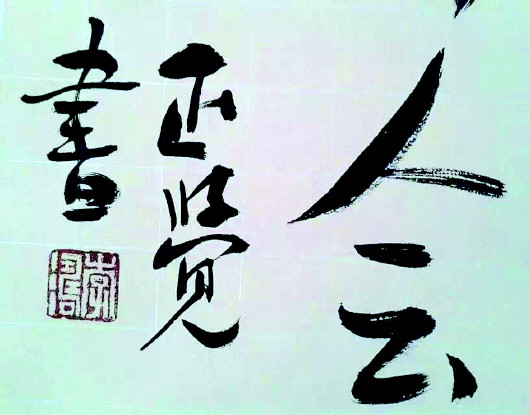 人云
正覺
書